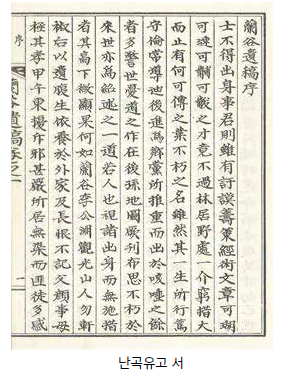 蘭谷遺稿序
士不得出身事君則雖有訏謨籌策經術文章可瑚
可璉可黼可黻之才竟不過林居野處一介窮措大
而止有何可傳之業不朽之名雖然其一生所行篤
守倫常導迪後進爲鄉黨所推重而出於咳唾之餘
者多警世憂道之作在後孫地圖厥剞布思不朽於
來世亦爲紹述之一道若人也視諸出身而無施措
者其高下微顯果何如蘭谷李公淵觀光山人勿軒
椒后以遺腹生依養於外家及長恨不記父顔事母
極其孝甲午東擾斥邪甚嚴所居無梁而匪徒多感
序
蘭谷遺稿卷之一
一
난곡유고 서